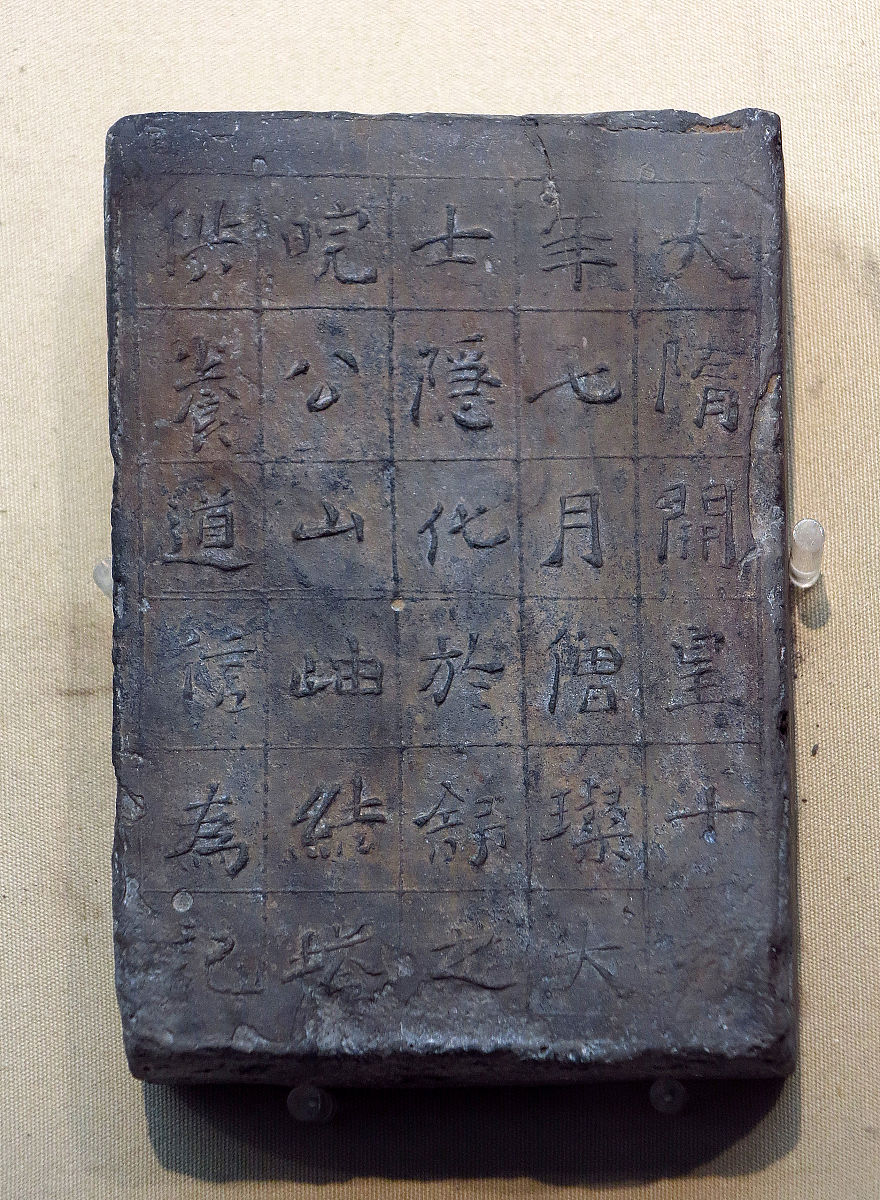 大隋開皇十
年七月僧璨大
士隱化於舒之
皖公山岫結塔
供養道信為記